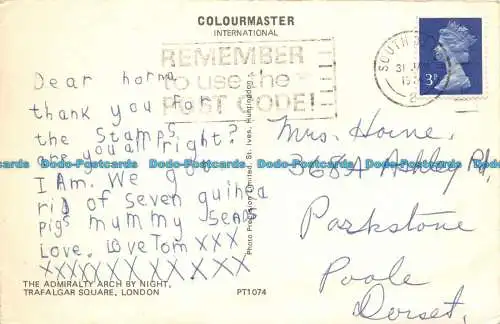 COLOURMASTER
INTERNATIONAL
REMEMBER
to use the
POST CODE!
SOUTH
31 JAN
3P
Dear horna
thank you For
the Stamps
are you all right?
I Am. We got
rid of seven guinea
pigs mummy sends
Love. love Tom XXX
XXXXXXXXXXX
Mrs. Horne,
368A Ashley Rd,
Parkstone
Poole
Dorset,
Photo Precision Limited, St. Ives, Huntingdon
THE ADMIRALTY ARCH BY NIGHT,
TRAFALGAR SQUARE, LONDON
PT1074
Dodo-Postcards Dodo-Postcards Dodo-Postcards Dodo-Postcards Dodo-Postcards